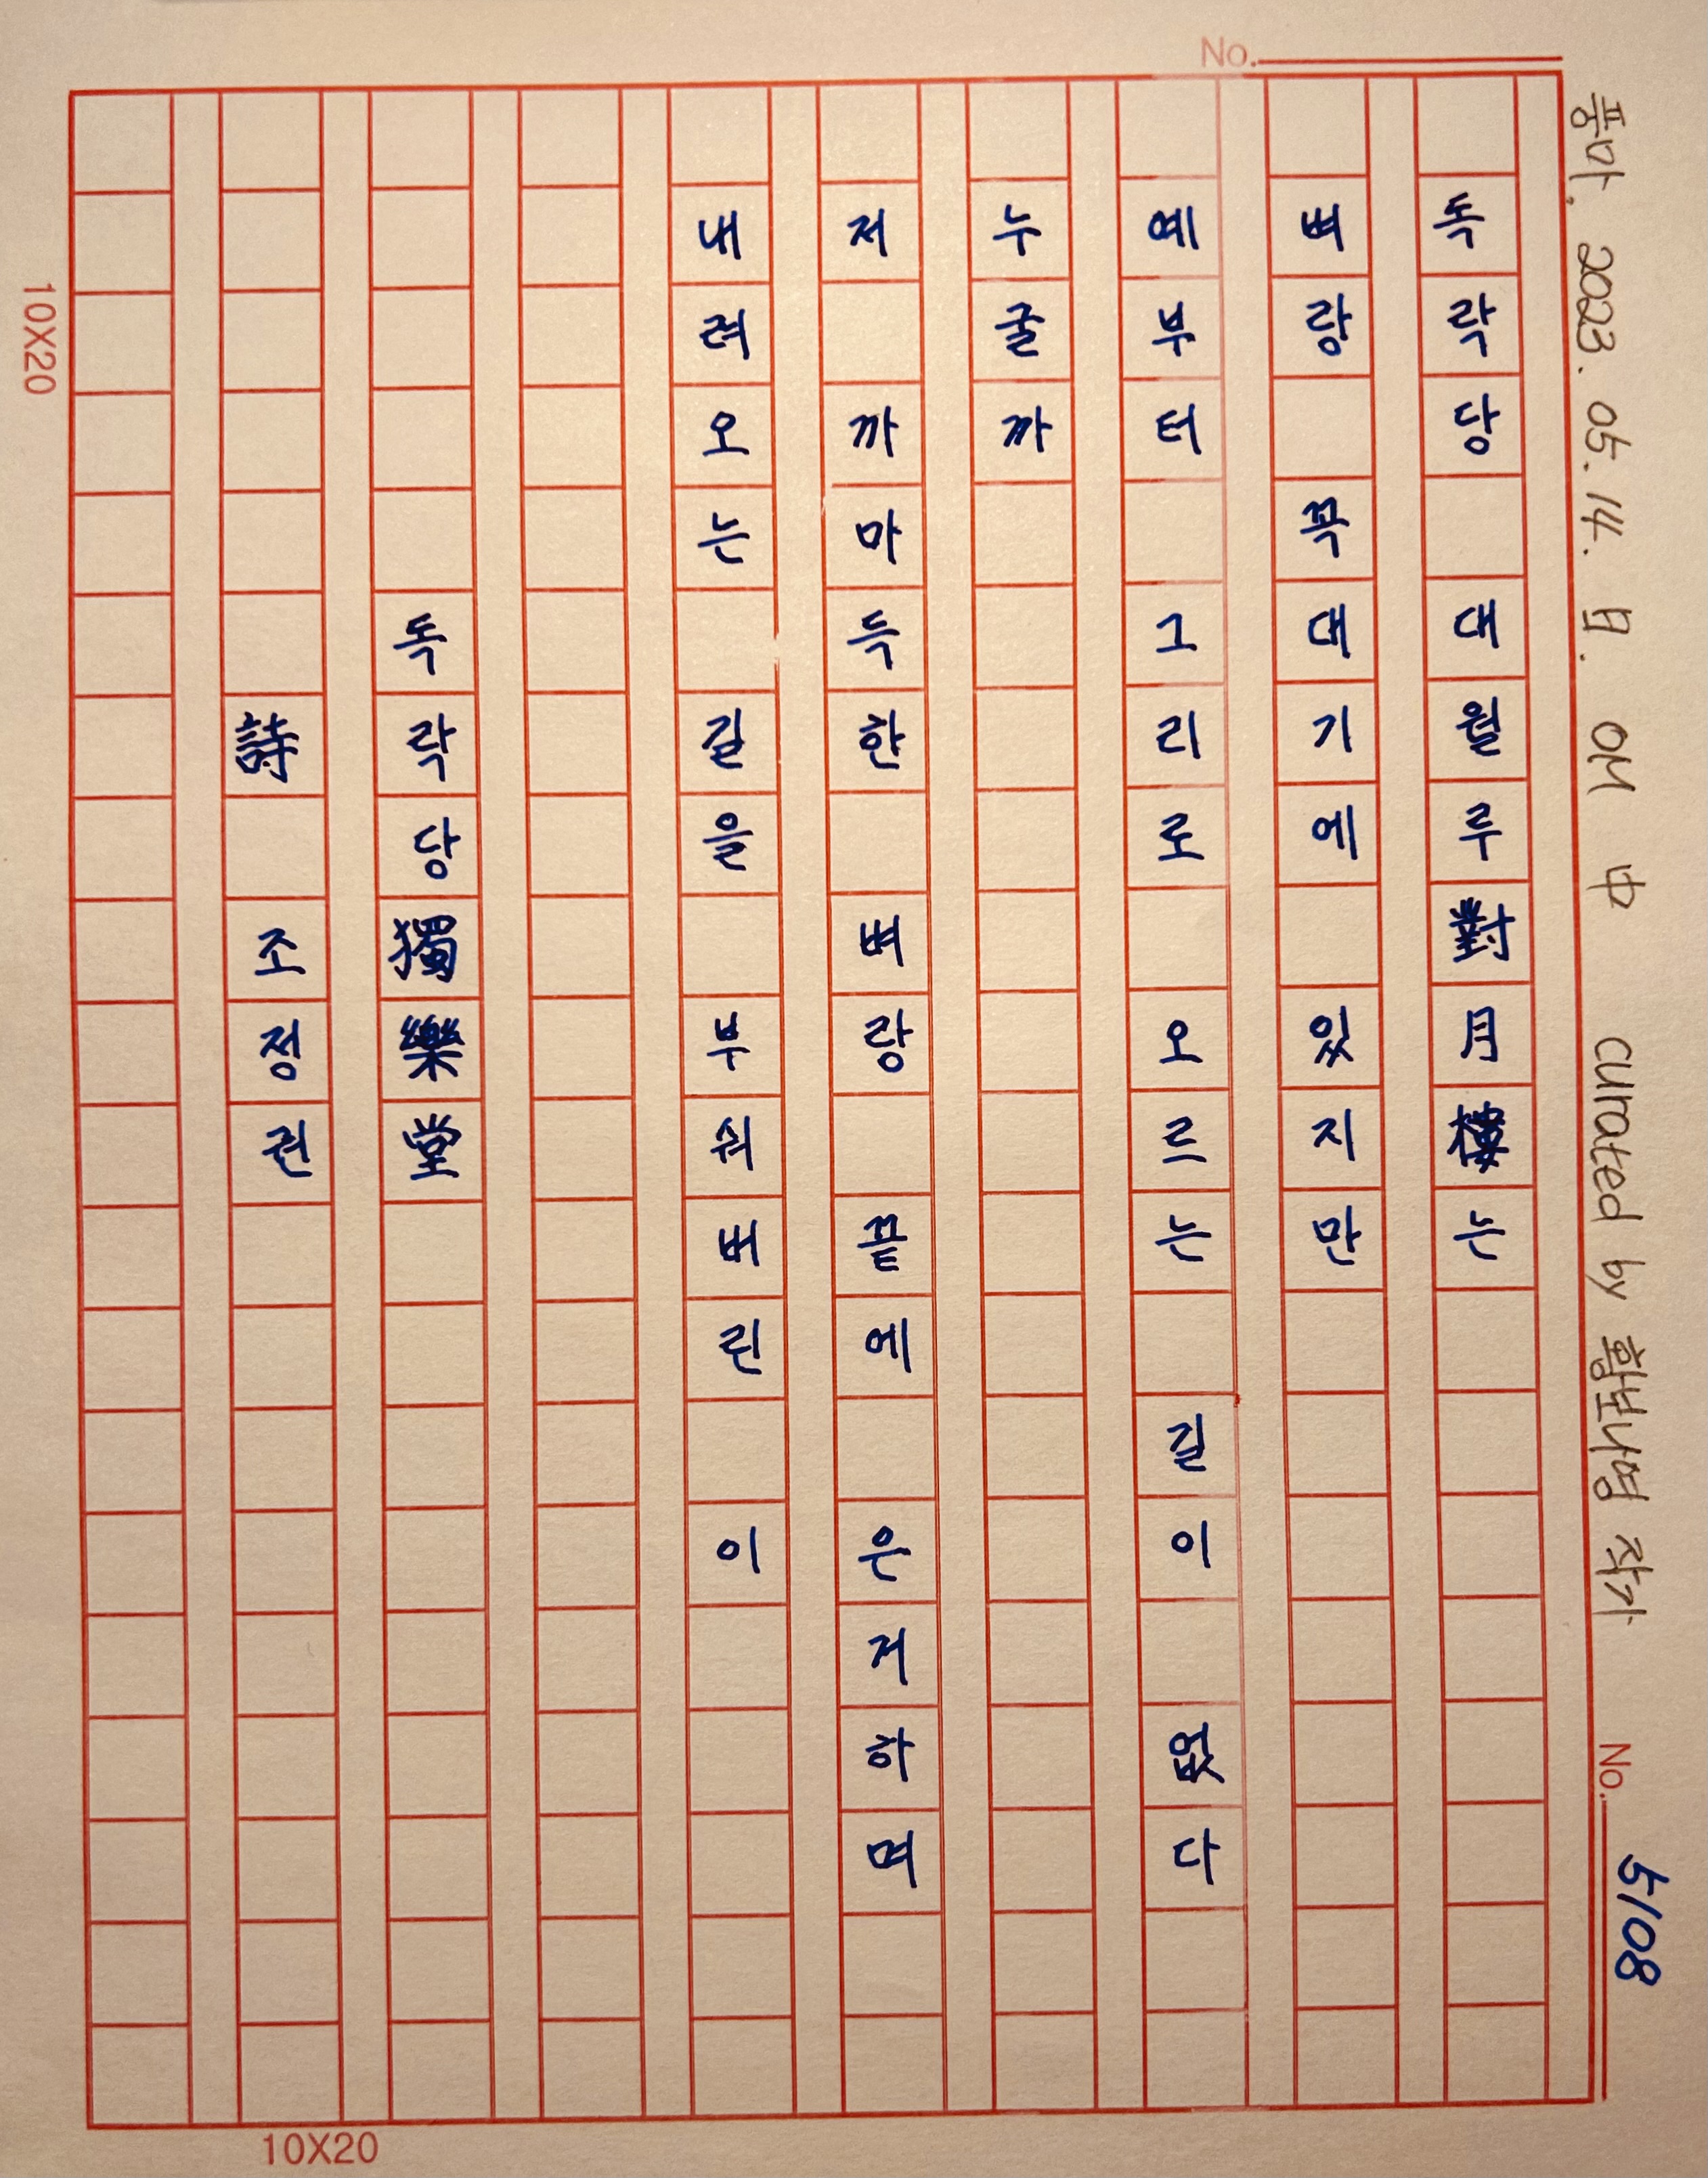 No.
풍마. 2023. 05. 14. 日. OM 中 curated by 황보나영 작가
No. 5/08
독락당 대월루對月樓는
벼랑 꼭대기에 있지만
예부터 그리로 오르는 길이 없다
누굴까
저 까마득한 벼랑 끝에 은거하며
내려오는 길을 부숴버린 이
독락당獨樂堂
詩 조정권
10X20
10X20